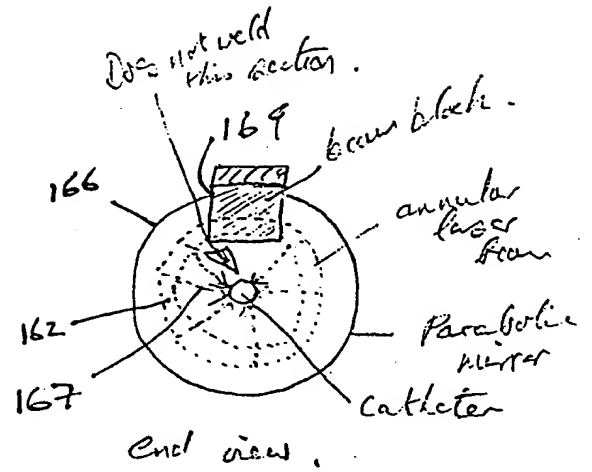 Does not weld
this section.
169
beam block.
166
annular
laser
beam
162
Parabolic
mirror
167
Catheter
end view.